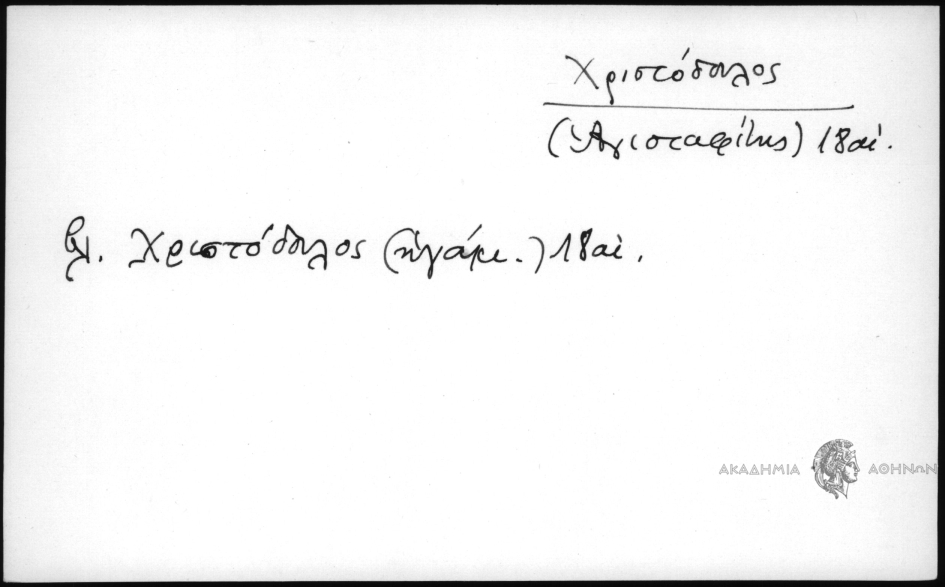 Χριστόδουλος
(Ἁγιοταφίτης) 18 αἰ.
βλ. Χριστόδουλος (ἡγούμ.) 18 αἰ.
ΑΚΑΔΗΜΙΑ ΑΘΗΝΩΝ